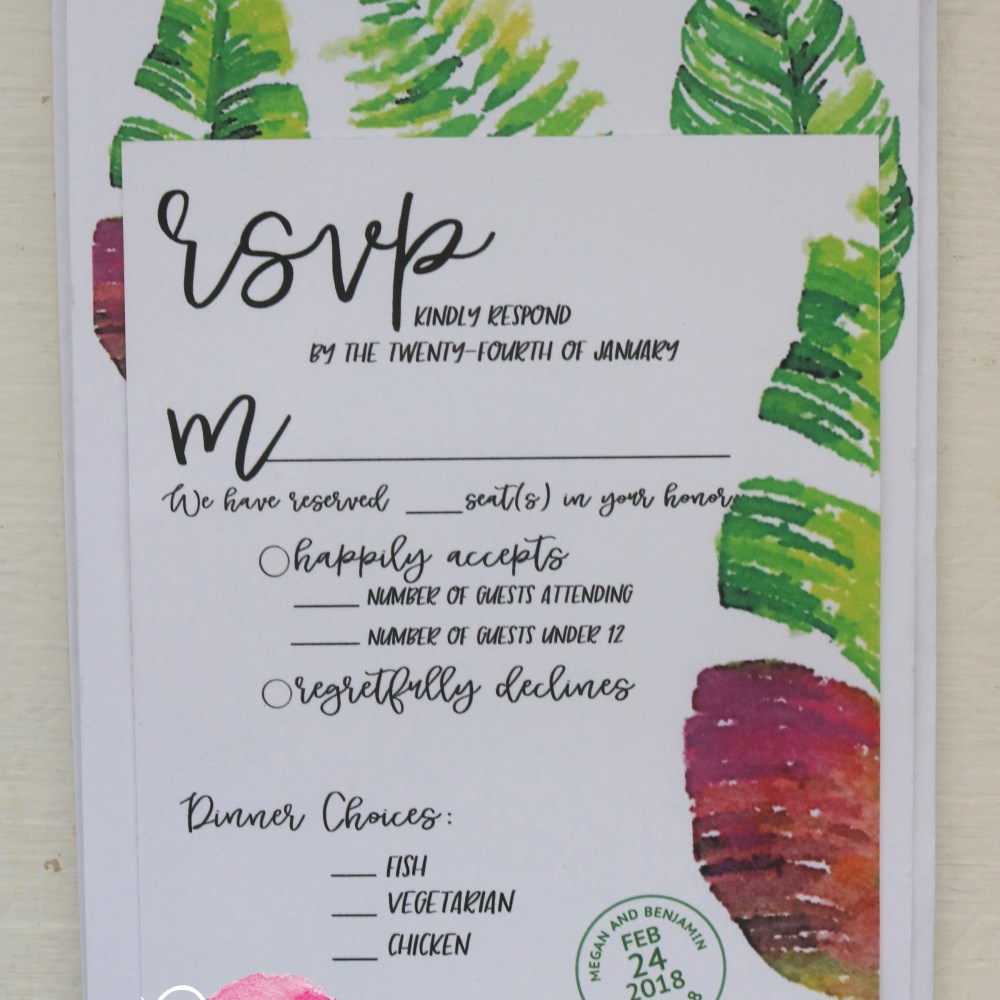 rsvp
KINDLY RESPOND
BY THE TWENTY-FOURTH OF JANUARY
m
We have reserved ____ seat(s) in your honor
happily accepts
____ NUMBER OF GUESTS ATTENDING
____ NUMBER OF GUESTS UNDER 12
regretfully declines
Dinner Choices:
___ FISH
___ VEGETARIAN
___ CHICKEN
MEGAN AND BENJAMIN
FEB
24
2018